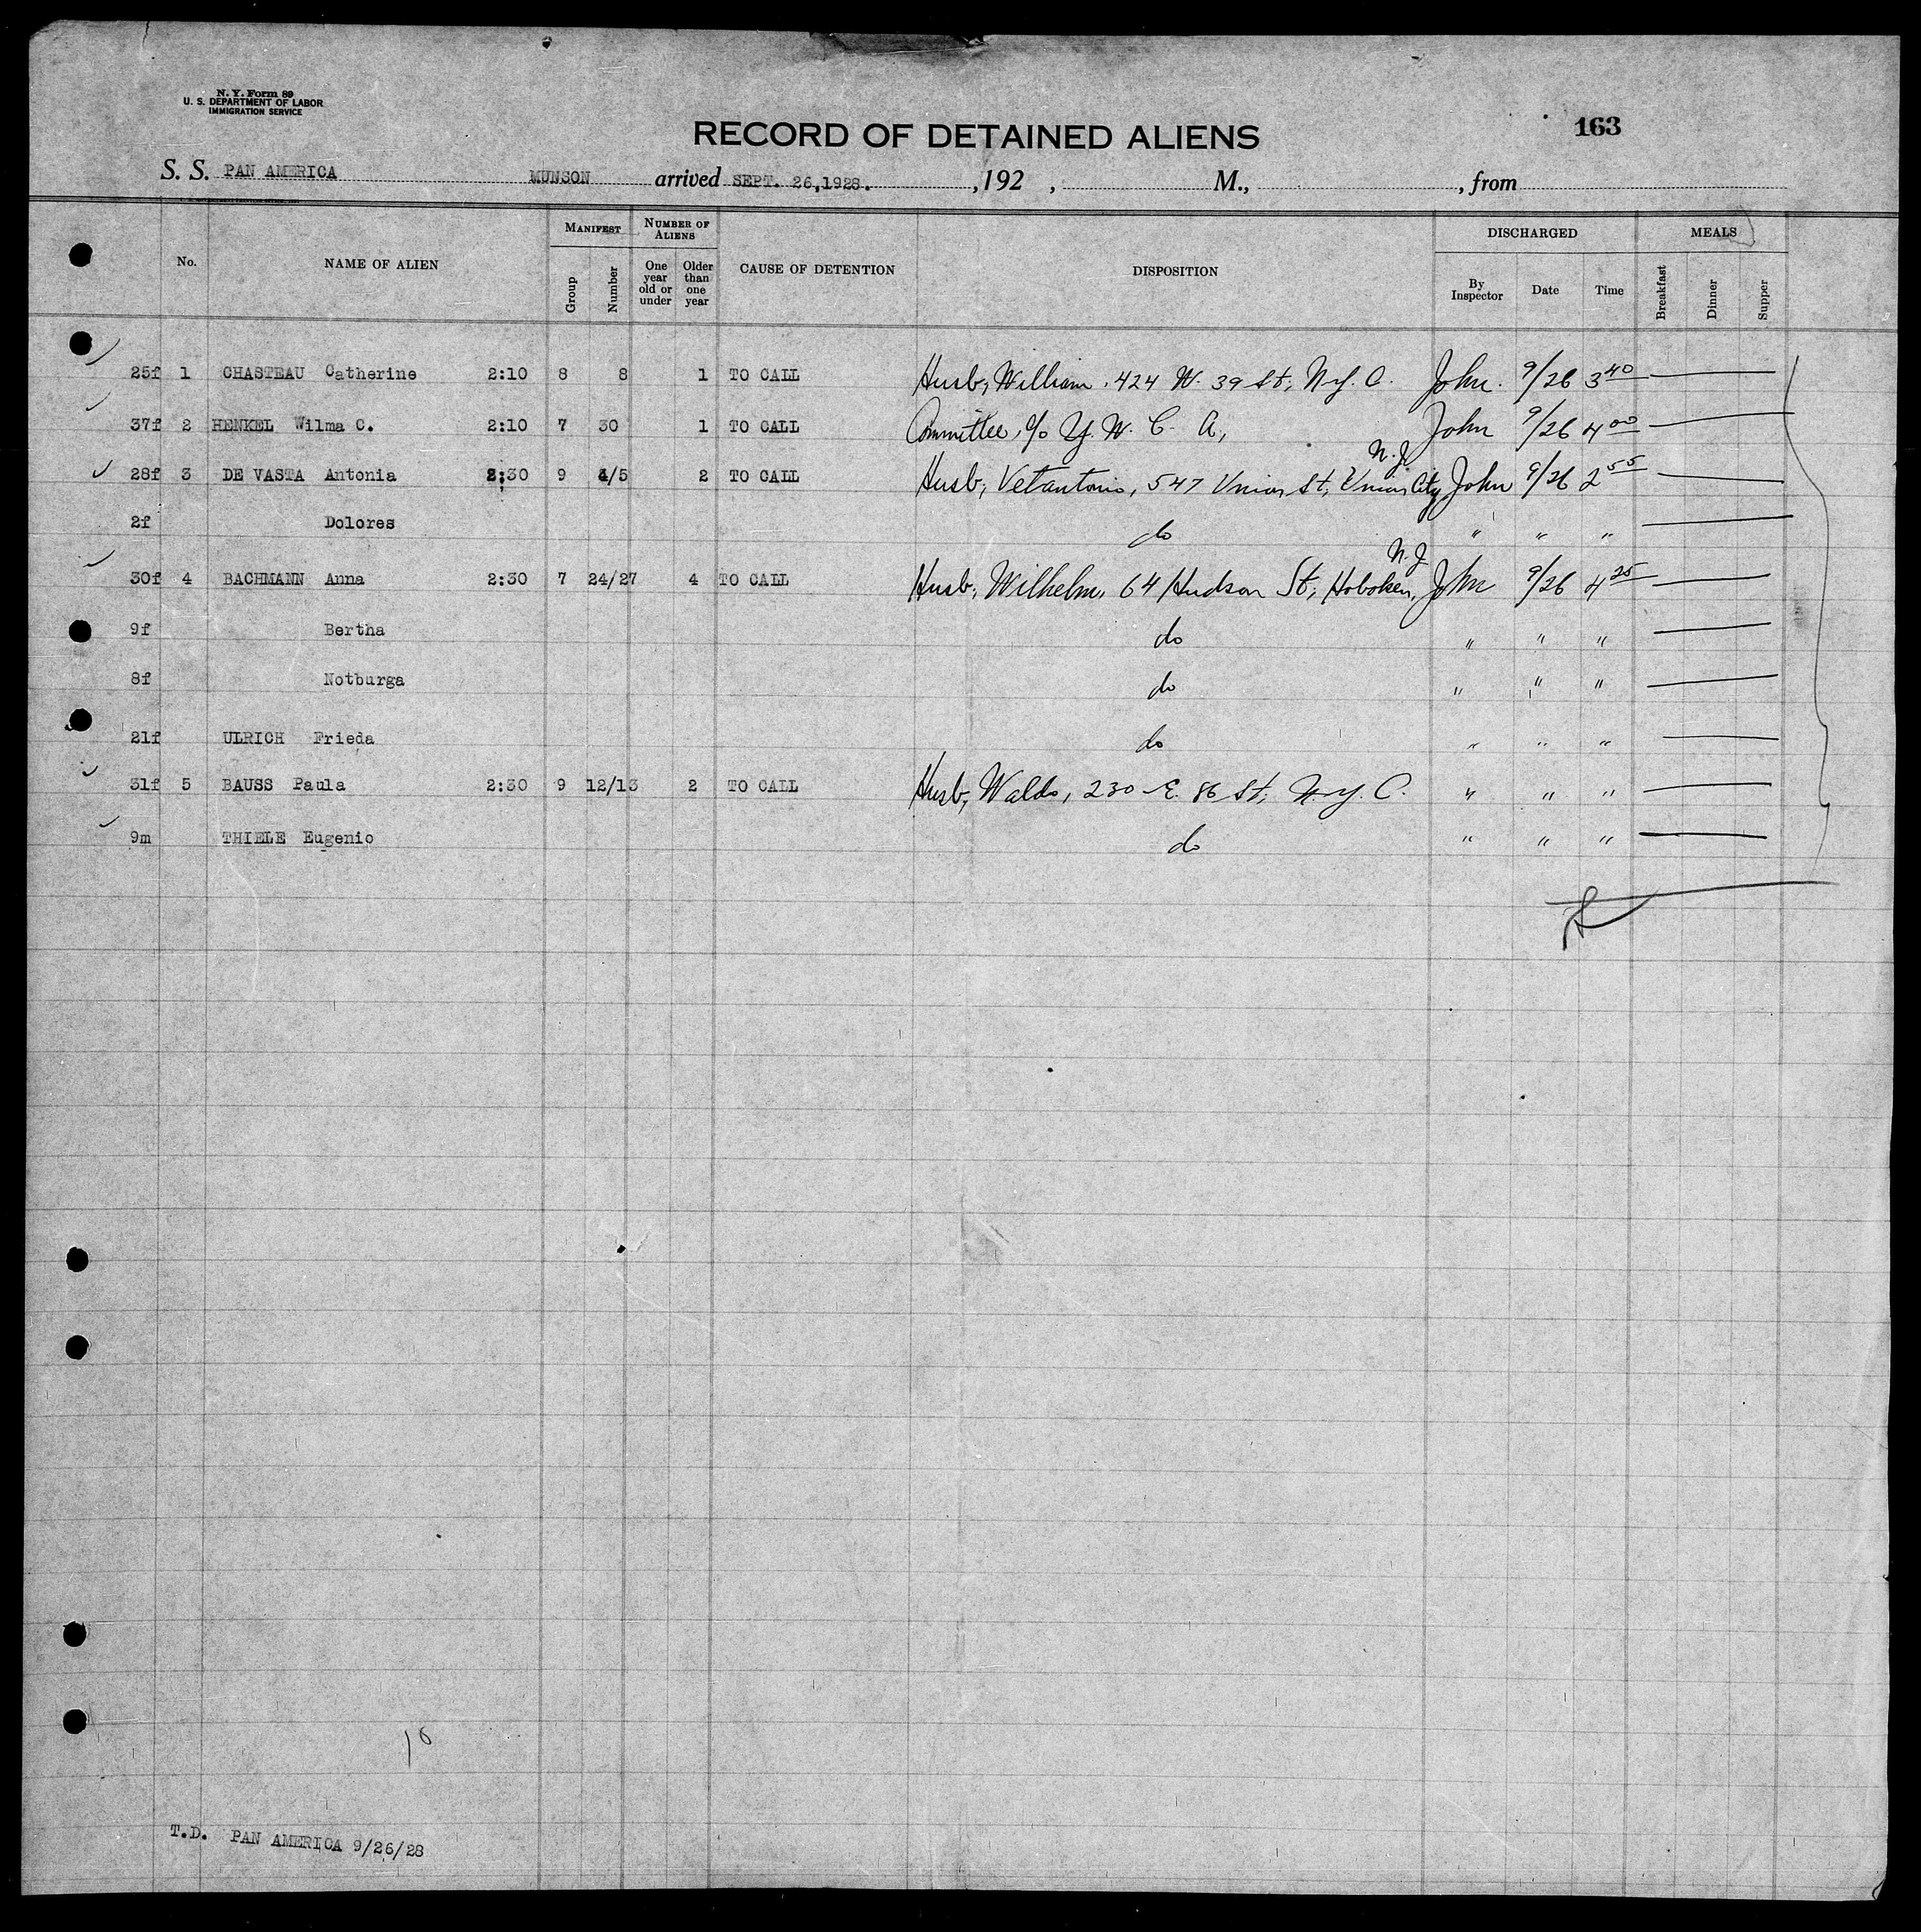 N. Y. Form 89
U. S. DEPARTMENT OF LABOR
IMMIGRATION SERVICE
163
RECORD OF DETAINED ALIENS
S. S. PAN AMERICA MUNSON arrived SEPT. 26,1928. ,192 , M., , from
MANIFEST NUMBER OF ALIENS DISCHARGED MEALS
No. NAME OF ALIEN Group Number One year old or under Older than one year CAUSE OF DETENTION DISPOSITION By Inspector Date Time Breakfast Dinner Supper
25f 1 CHASTEAU Catherine 2:10 8 8 1 TO CALL Husb, William. 424 W. 39 St, N.Y. C. John. 9/26 3 40
37f 2 HENKEL Wilma C. 2:10 7 30 1 TO CALL Committee, c/o Y. W. C. A, John 9/26 4 00
28f 3 DE VASTA Antonia 2:30 9 4/5 2 TO CALL Husb, Vetantonio, 547 Union St, Union City N.J. John 9/26 2 55
2f Dolores do " " "
30f 4 BACHMANN Anna 2:30 7 24/27 4 TO CALL Husb, Wilhelm, 64 Hudson St, Hoboken, N.J. John 9/26 4 25
9f Bertha do " " "
8f Notburga do " " "
21f ULRICH Frieda do " " "
31f 5 BAUSS Paula 2:30 9 12/13 2 TO CALL Husb, Waldo, 230 E. 86 St, N.Y. C. " " "
9m THIELE Eugenio do " " "
10
T.D. PAN AMERICA 9/26/28